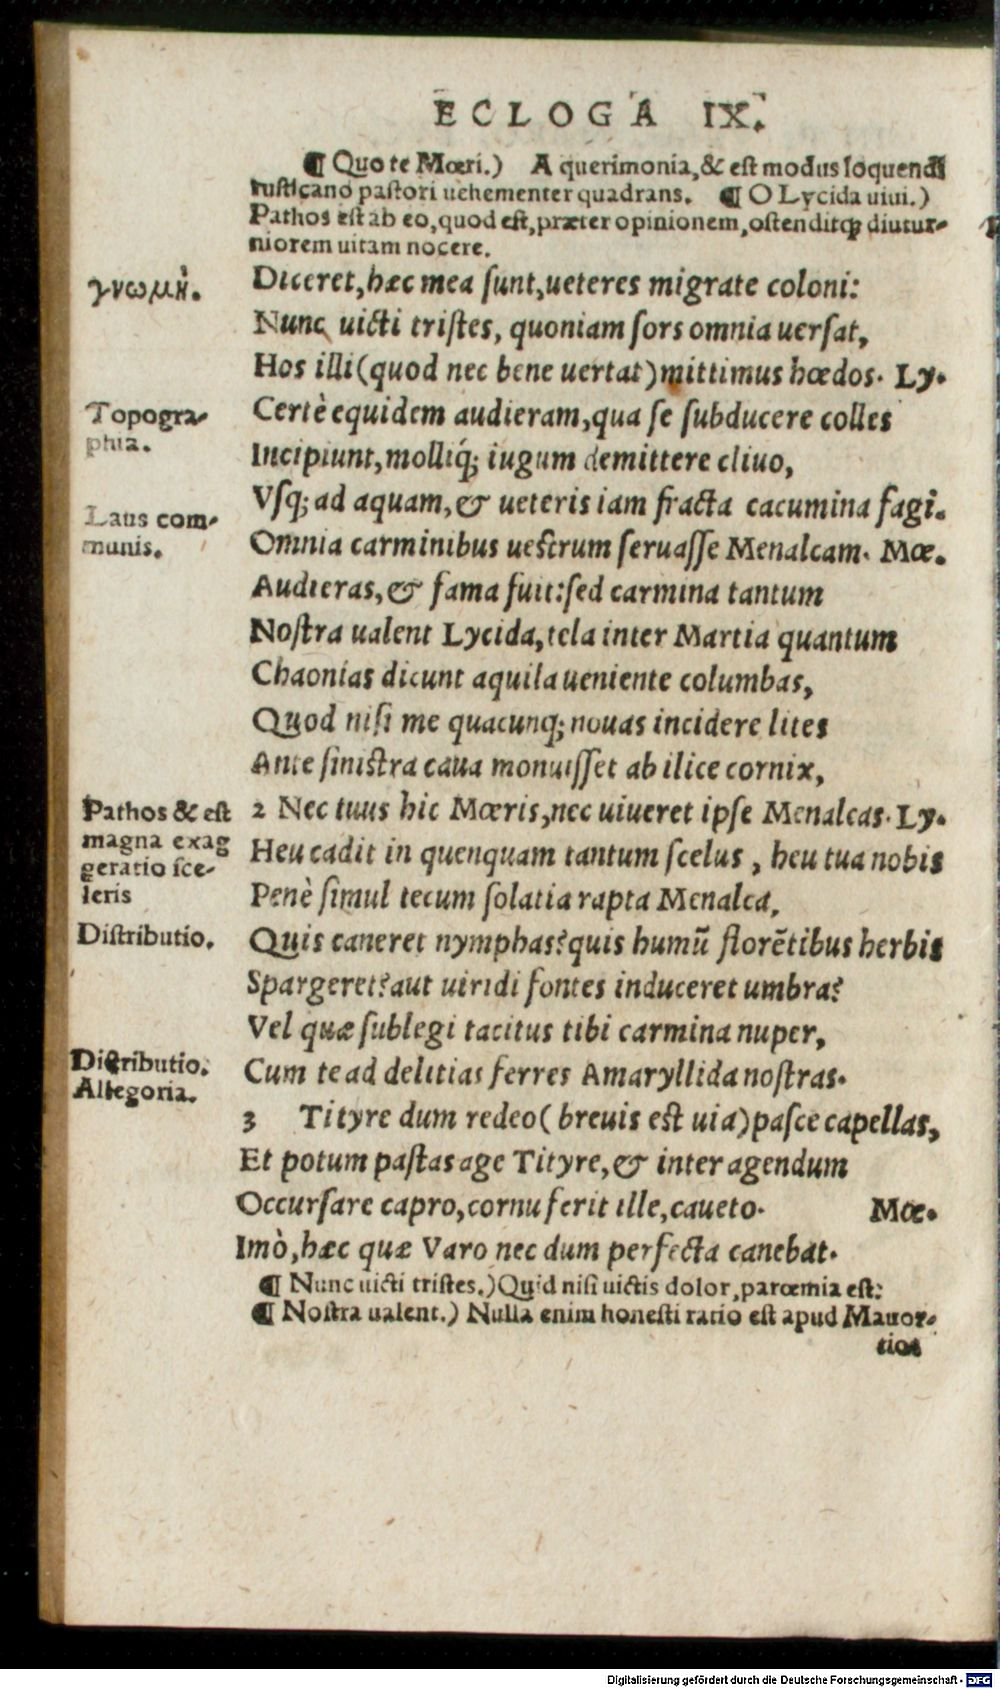 ECLOGA IX.
¶ Quo te Mœri.) A querimonia, & est modus loquendi
rusticano pastori uehementer quadrans. ¶ O Lycida uiui.)
Pathos est ab eo, quod est, præter opinionem, ostenditq́; diutur-
niorem uitam nocere.
γνωμή.
Diceret, hæc mea sunt, ueteres migrate coloni:
Nunc uicti tristes, quoniam sors omnia uersat,
Hos illi (quod nec bene uertat) mittimus hœdos. Ly.
Topogra-
phia.
Certè equidem audieram, qua se subducere colles
Incipiunt, molliq́; iugum demittere cliuo,
Vsq; ad aquam, & ueteris iam fracta cacumina fagi.
Laus com-
munis.
Omnia carminibus uestrum seruasse Menalcam. Mœ.
Audieras, & fama fuit: sed carmina tantum
Nostra ualent Lycida, tela inter Martia quantum
Chaonias dicunt aquila ueniente columbas,
Quod nisi me quacunq; nouas incidere lites
Ante sinistra caua monuisset ab ilice cornix,
Pathos & est
magna exag
geratio sce-
leris
2 Nec tuus hic Mœris, nec uiueret ipse Menalcas. Ly.
Heu cadit in quenquam tantum scelus, heu tua nobis
Penè simul tecum solatia rapta Menalca.
Distributio.
Quis caneret nymphas? quis humū florētibus herbis
Spargeret? aut uiridi fontes induceret umbra?
Vel quæ sublegi tacitus tibi carmina nuper,
Distributio.
Allegoria.
Cum te ad delitias ferres Amaryllida nostras.
3 Tityre dum redeo (breuis est uia) pasce capellas,
Et potum pastas age Tityre, & inter agendum
Occursare capro, cornu ferit ille, caueto. Mœ.
Imò, hæc quæ Varo nec dum perfecta canebat.
¶ Nunc uicti tristes.) Quid nisi uictis dolor, parœmia est:
¶ Nostra ualent.) Nulla enim honesti ratio est apud Mauor-
tios
Digitalisierung gefördert durch die Deutsche Forschungsgemeinschaft - DFG